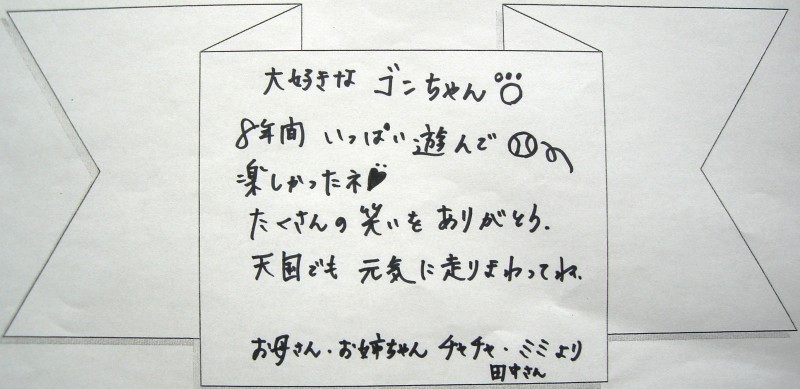 大好きな ゴンちゃん
8年間 いっぱい遊んで
楽しかったネ
たくさんの笑いをありがとう.
天国でも 元気に走りまわってね.
お母さん・お姉ちゃん チャチャ・ミミより
田中さん